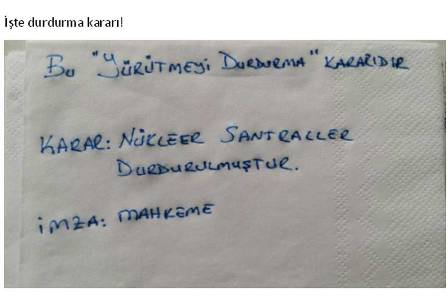 İşte durdurma kararı!
BU "YÜRÜTMEYİ DURDURMA" KARARIDIR
KARAR: NÜKLEER SANTRALLER
DURDURULMUŞTUR.
İMZA: MAHKEME